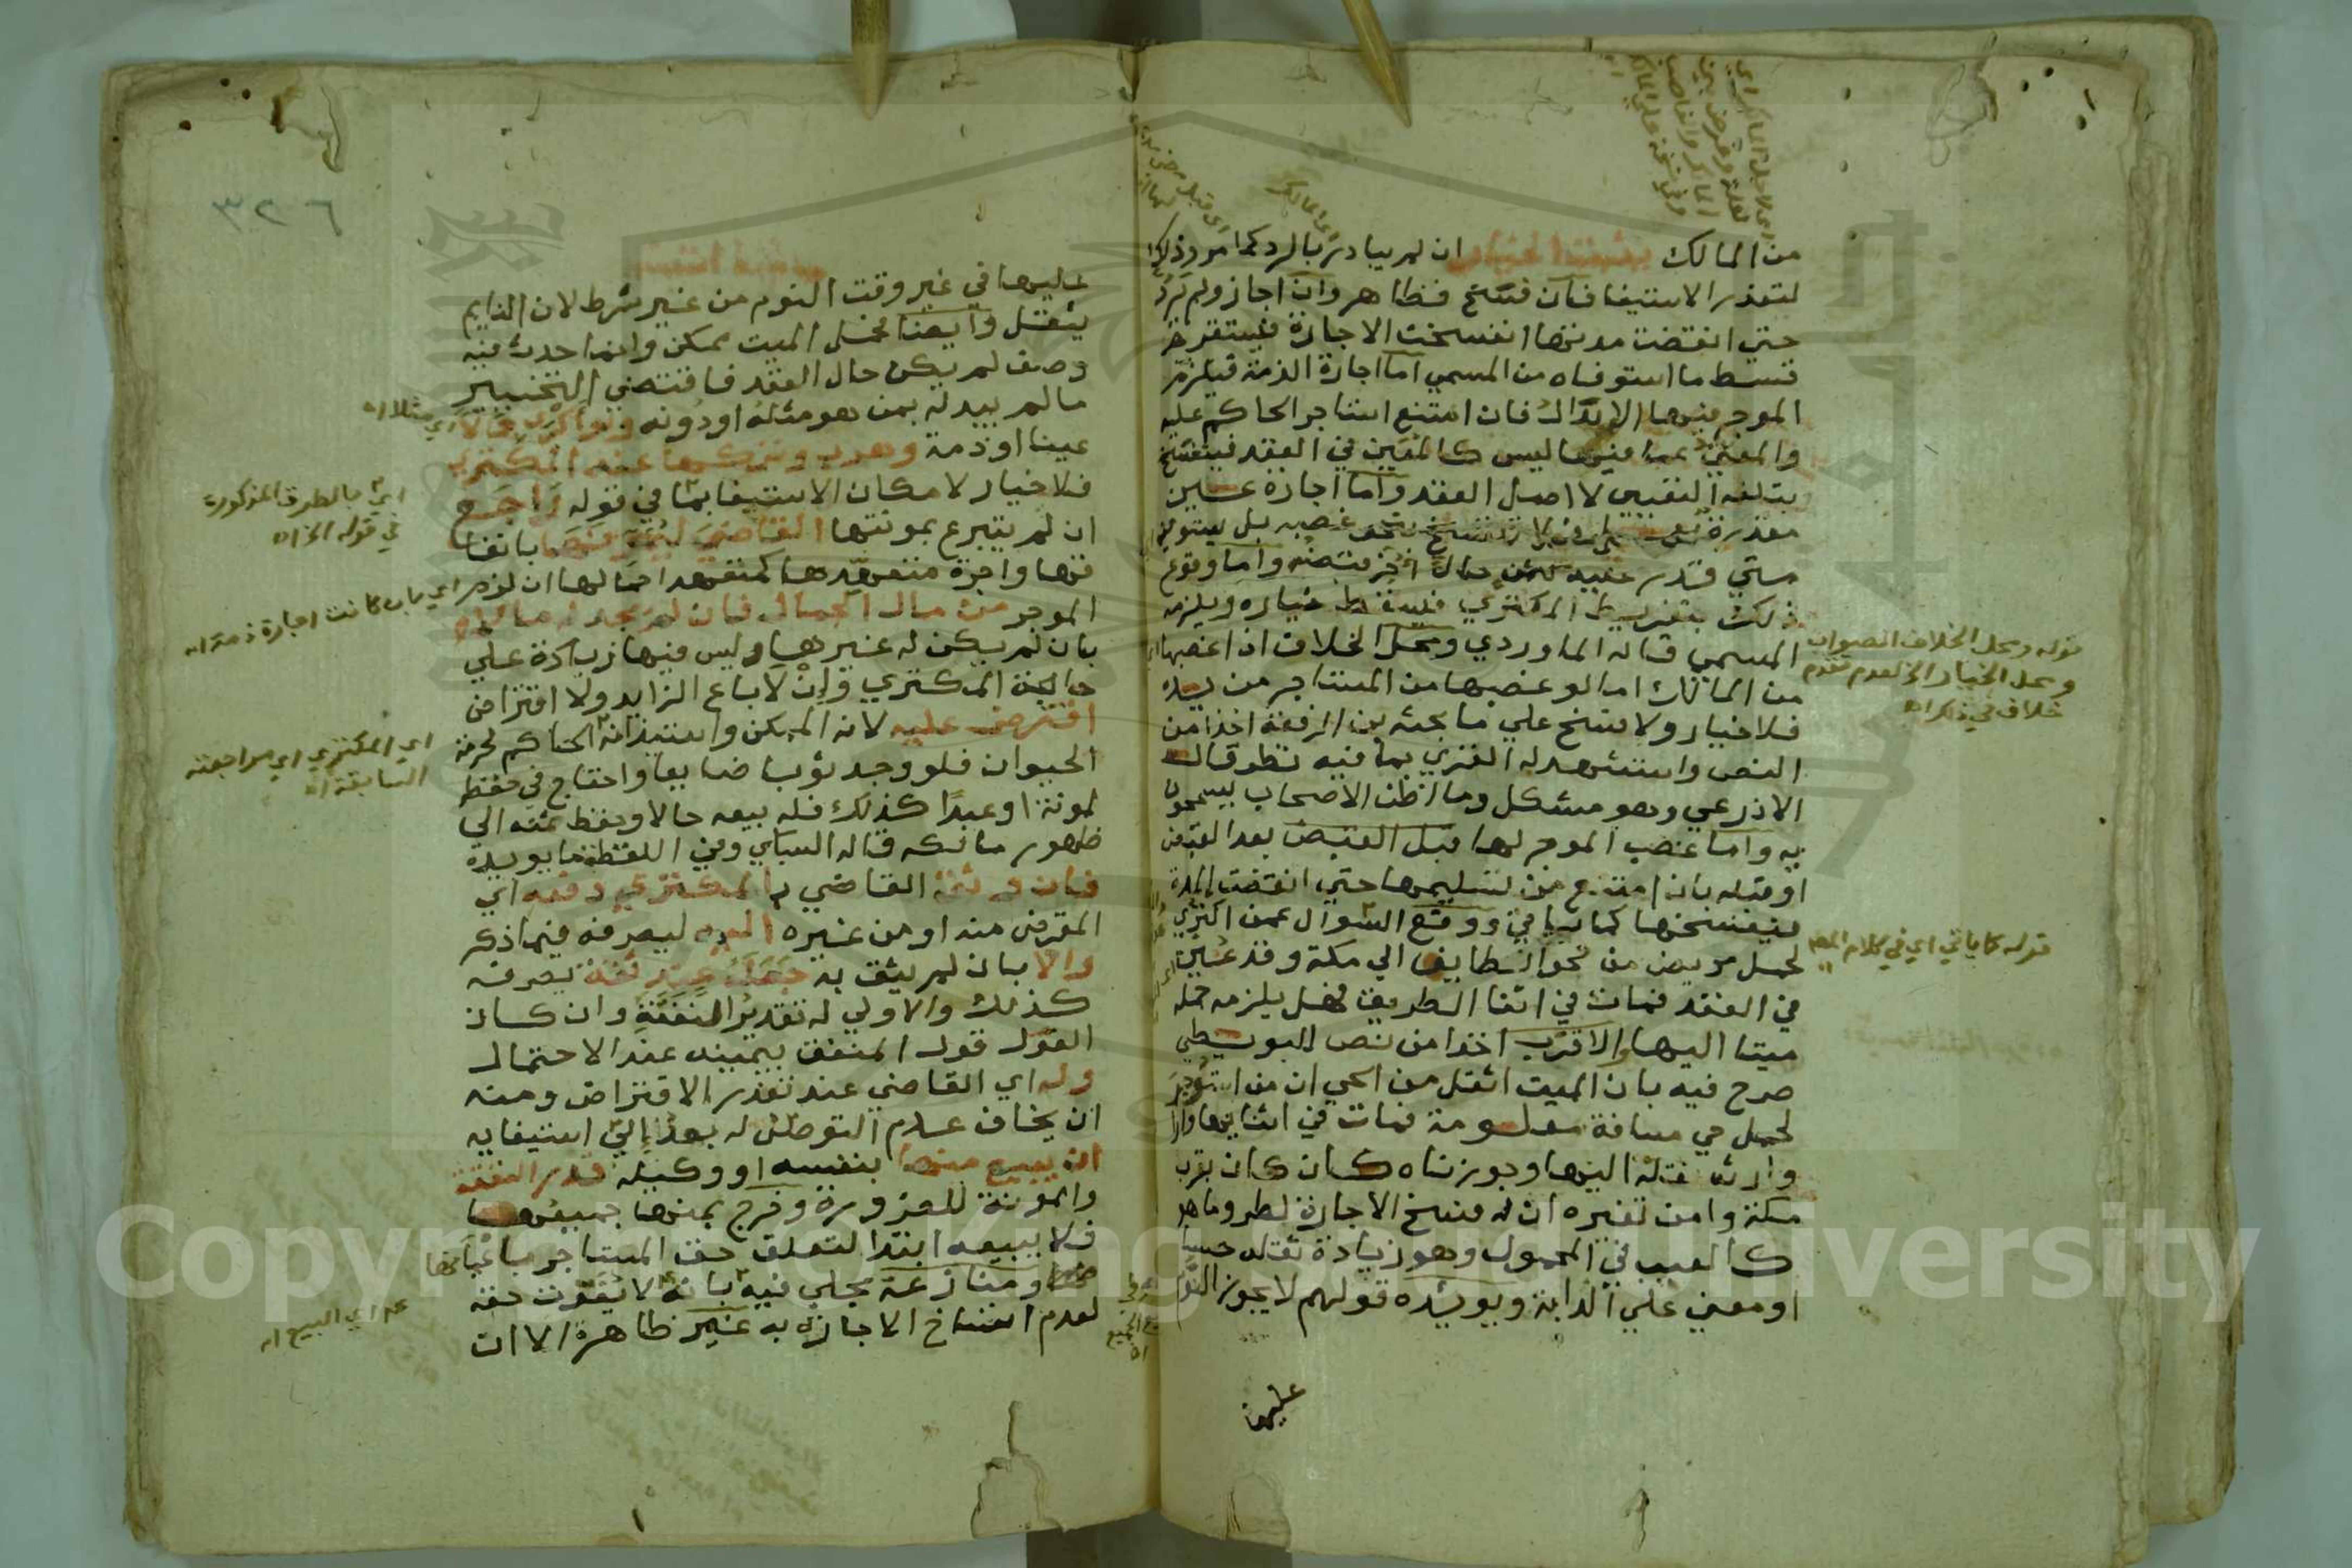 من المالك يثبت الخيار ان لم يبادر بالرد كما مر وذلك
لتعذر الاستيفا فان فسخ فظاهر وان اجاز ولم ترد
حتي انقضت مدتها انفسخت الاجارة فيستقر
قسط ما استوفاه من المسمي اما اجارة الذمة فيلزم
الموجر فيها الابدال فان امتنع استاجر الحاكم عليه
والمعين عما فيها ليس كالمعين في العقد فينفسخ
بتلفه التعيين لا اصل العقد واما اجارة عين
مقدرة بعمل فلا تنفسخ بنحو غصبه بل يستوفيه
متي قدر عليه كثمن حال اخر قبضه واما وقوع
ذلك بتفريط المكتري فليسقط خياره ويلزمه
المسمي قاله الماوردي ومحل الخلاف ان اغصبها
من المالك اما لو غصبها من المستاجر من يده
فلا خيار ولا فسخ علي ما بحثه بن الرفعة اخذا من
النص واستشهد له الغزي بما فيه نظر قال
الاذرعي وهو مشكل وما اظن الاصحاب يسمحون
به واما غصب الموجر لها قبل القبض بعد القبض
او قبله بان امتنع من تسليمها حتي انقضت المدة
فيفسخها كما ياتي ووقع السوال عمن اكتري
لحمل مريض من نحو الطايف الي مكة وقد عين
في العقد فمات في اثنا الطريق فهل يلزمه حمله
ميتا اليها والاقرب اخذا من نص البويطي
صرح فيه بان الميت اثقل من الحي ان من استوجر
لحمل حي مسافة معلومة فمات في اثنايها واراد
وارثه نقله اليها وجوزناه كان كان بقرب
مكة وامن تغيره ان له فسخ الاجارة لطرو ما هو
كالعيب في المحمول وهو زيادة ثقله حسا
او معني علي الدابة ويويده قولهم لا يجوز النوم
عليها
قوله ومحل الخلاف الصواب
ومحل الخيار الخ لعدم تقدم
خلاف في ذكر اه
قوله كما ياتي اي في كلام المص
٣٢٦
عليها في غير وقت النوم من غير شرط لان النايم
يثقل وايضا فحمل الميت ممكن وانما حدث فيه
وصف لم يكن حال العقد فاقتضي التخيير
ما لم يبدله بمن هو مثله او دونه ولو اكري جمالا
عينا او ذمة وهرب وتركها عند المكتري
فلا خيار لامكان الاستيفا بما في قوله راجع
ان لم يتبرع بمونتها القاضي ليمونها بانفا
قها واجرة متعهدها كمتعهد احمالها ان لزم
الموجر من مال الجمال فان لم يجد له مالا
بان لم يكن له غيرها وليس فيها زيادة علي
حاجة المكتري والا باع الزايد ولا اقتراض
اقترض عليه لانه الممكن واستيذانه الحاكم لحرمة
الحيوان فلو وجد ثوبا ضايعا واحتاج في حفظه
لمونة او عبدا كذلك فله بيعه حالا وحفظ ثمنه الي
ظهور مالكه قاله السبكي وفي اللقطة ما يويده
فان وثق القاضي بالمكتري دفعه اي
المقترض منه او من غيره اليه ليصرفه فيما ذكر
والا بان لم يثق به جعله عند ثقة يصرفه
كذلك والاولي له تقدير النفقة وان كان
القول قول المنفق بيمينه عند الاحتمال
وله اي القاضي عند تعذر الاقتراض ومنه
ان يخاف عدم التوصل له بعد الي استيفايه
ان يبيع منها بنفسه او وكيله قدر النفقة
والمونة للضرورة وخرج بمنها جميعها
فلا يبيعه ابتدا لتعلق حق المستاجر باعيانها
ومنازعة مجلي فيه بانه لا يفوت حقه
لعدم انفساخ الاجارة به غير ظاهرة الا ان
اي مثلا اه
اي بالطرق المذكورة
في قوله الخ اه
اي بان كانت اجارة ذمة اه
اي المكتري اي مراجعته
السابقة اه
اي البيع اه